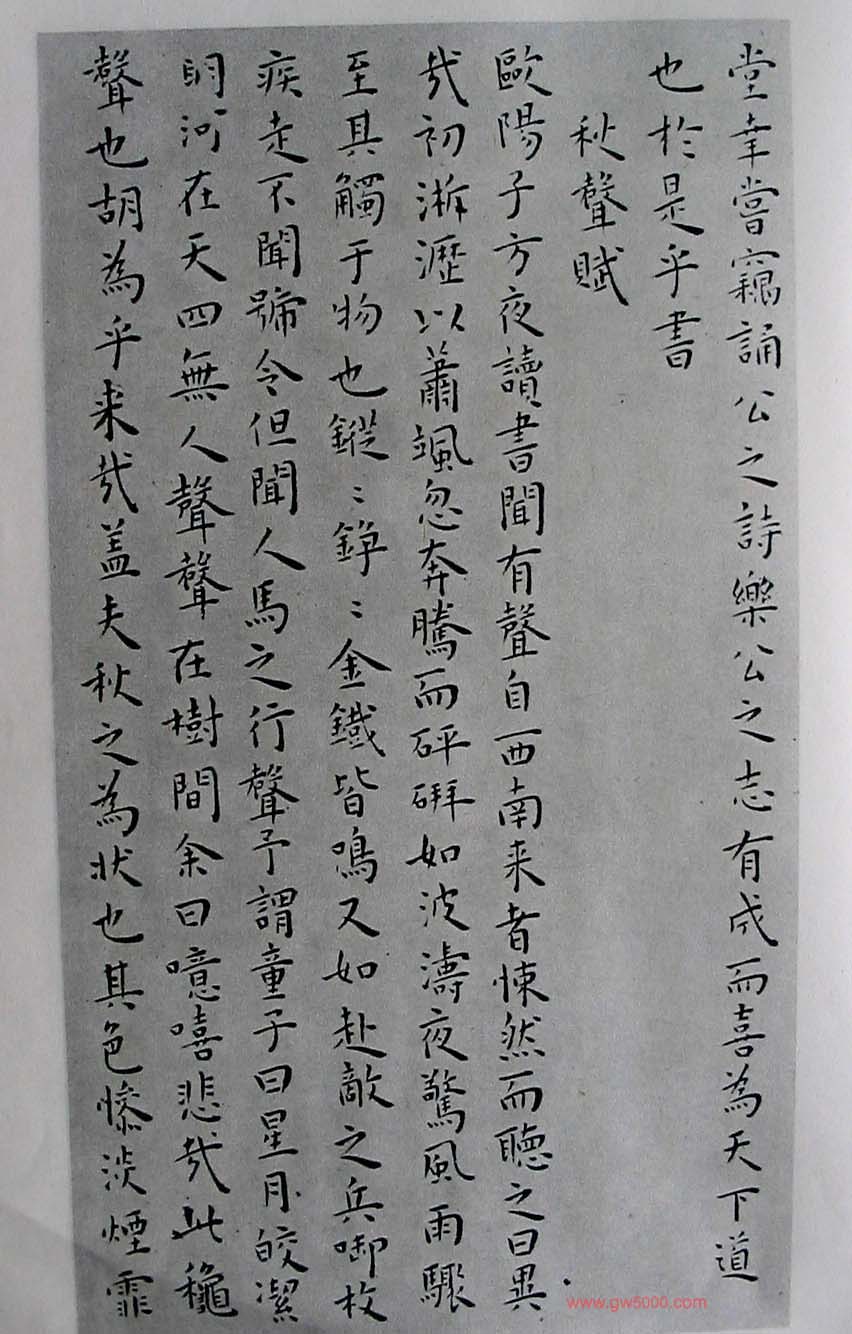 堂幸嘗竊誦公之詩樂公之志有成而喜為天下道
也於是乎書
秋聲賦
歐陽子方夜讀書聞有聲自西南来者悚然而聽之曰異
哉初淅瀝以蕭颯忽奔騰而砰湃如波濤夜驚風雨驟
至其觸于物也鏦〻錚〻金鐵皆鳴又如赴敵之兵啣枚
疾走不聞號令但聞人馬之行聲予謂童子曰星月皎潔
明河在天四無人聲聲在樹間余曰噫嘻悲哉此穐
聲也胡為乎来哉盖夫秋之為狀也其色慘淡煙霏
www.gw5000.com